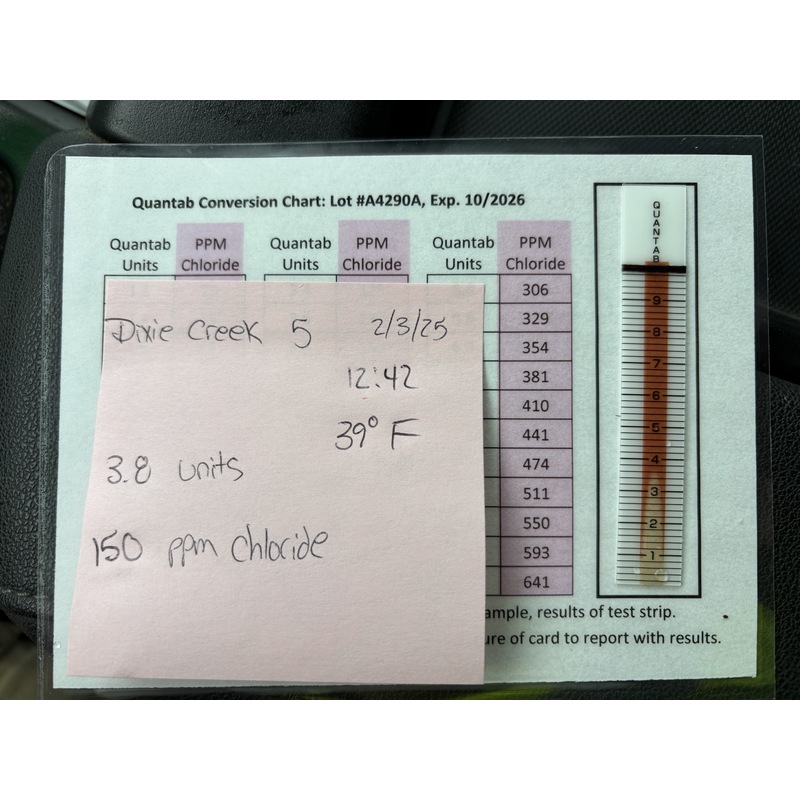 Quantab Conversion Chart: Lot #A4290A, Exp. 10/2026
Quantab Units PPM Chloride Quantab Units PPM Chloride Quantab Units PPM Chloride
306
329
354
381
410
441
474
511
550
593
641
Dixie Creek 5 2/3/25
12:42
39° F
3.8 units
150 ppm Chloride
QUANTAB
9
8
7
6
5
4
3
2
1
ample, results of test strip.
ure of card to report with results.